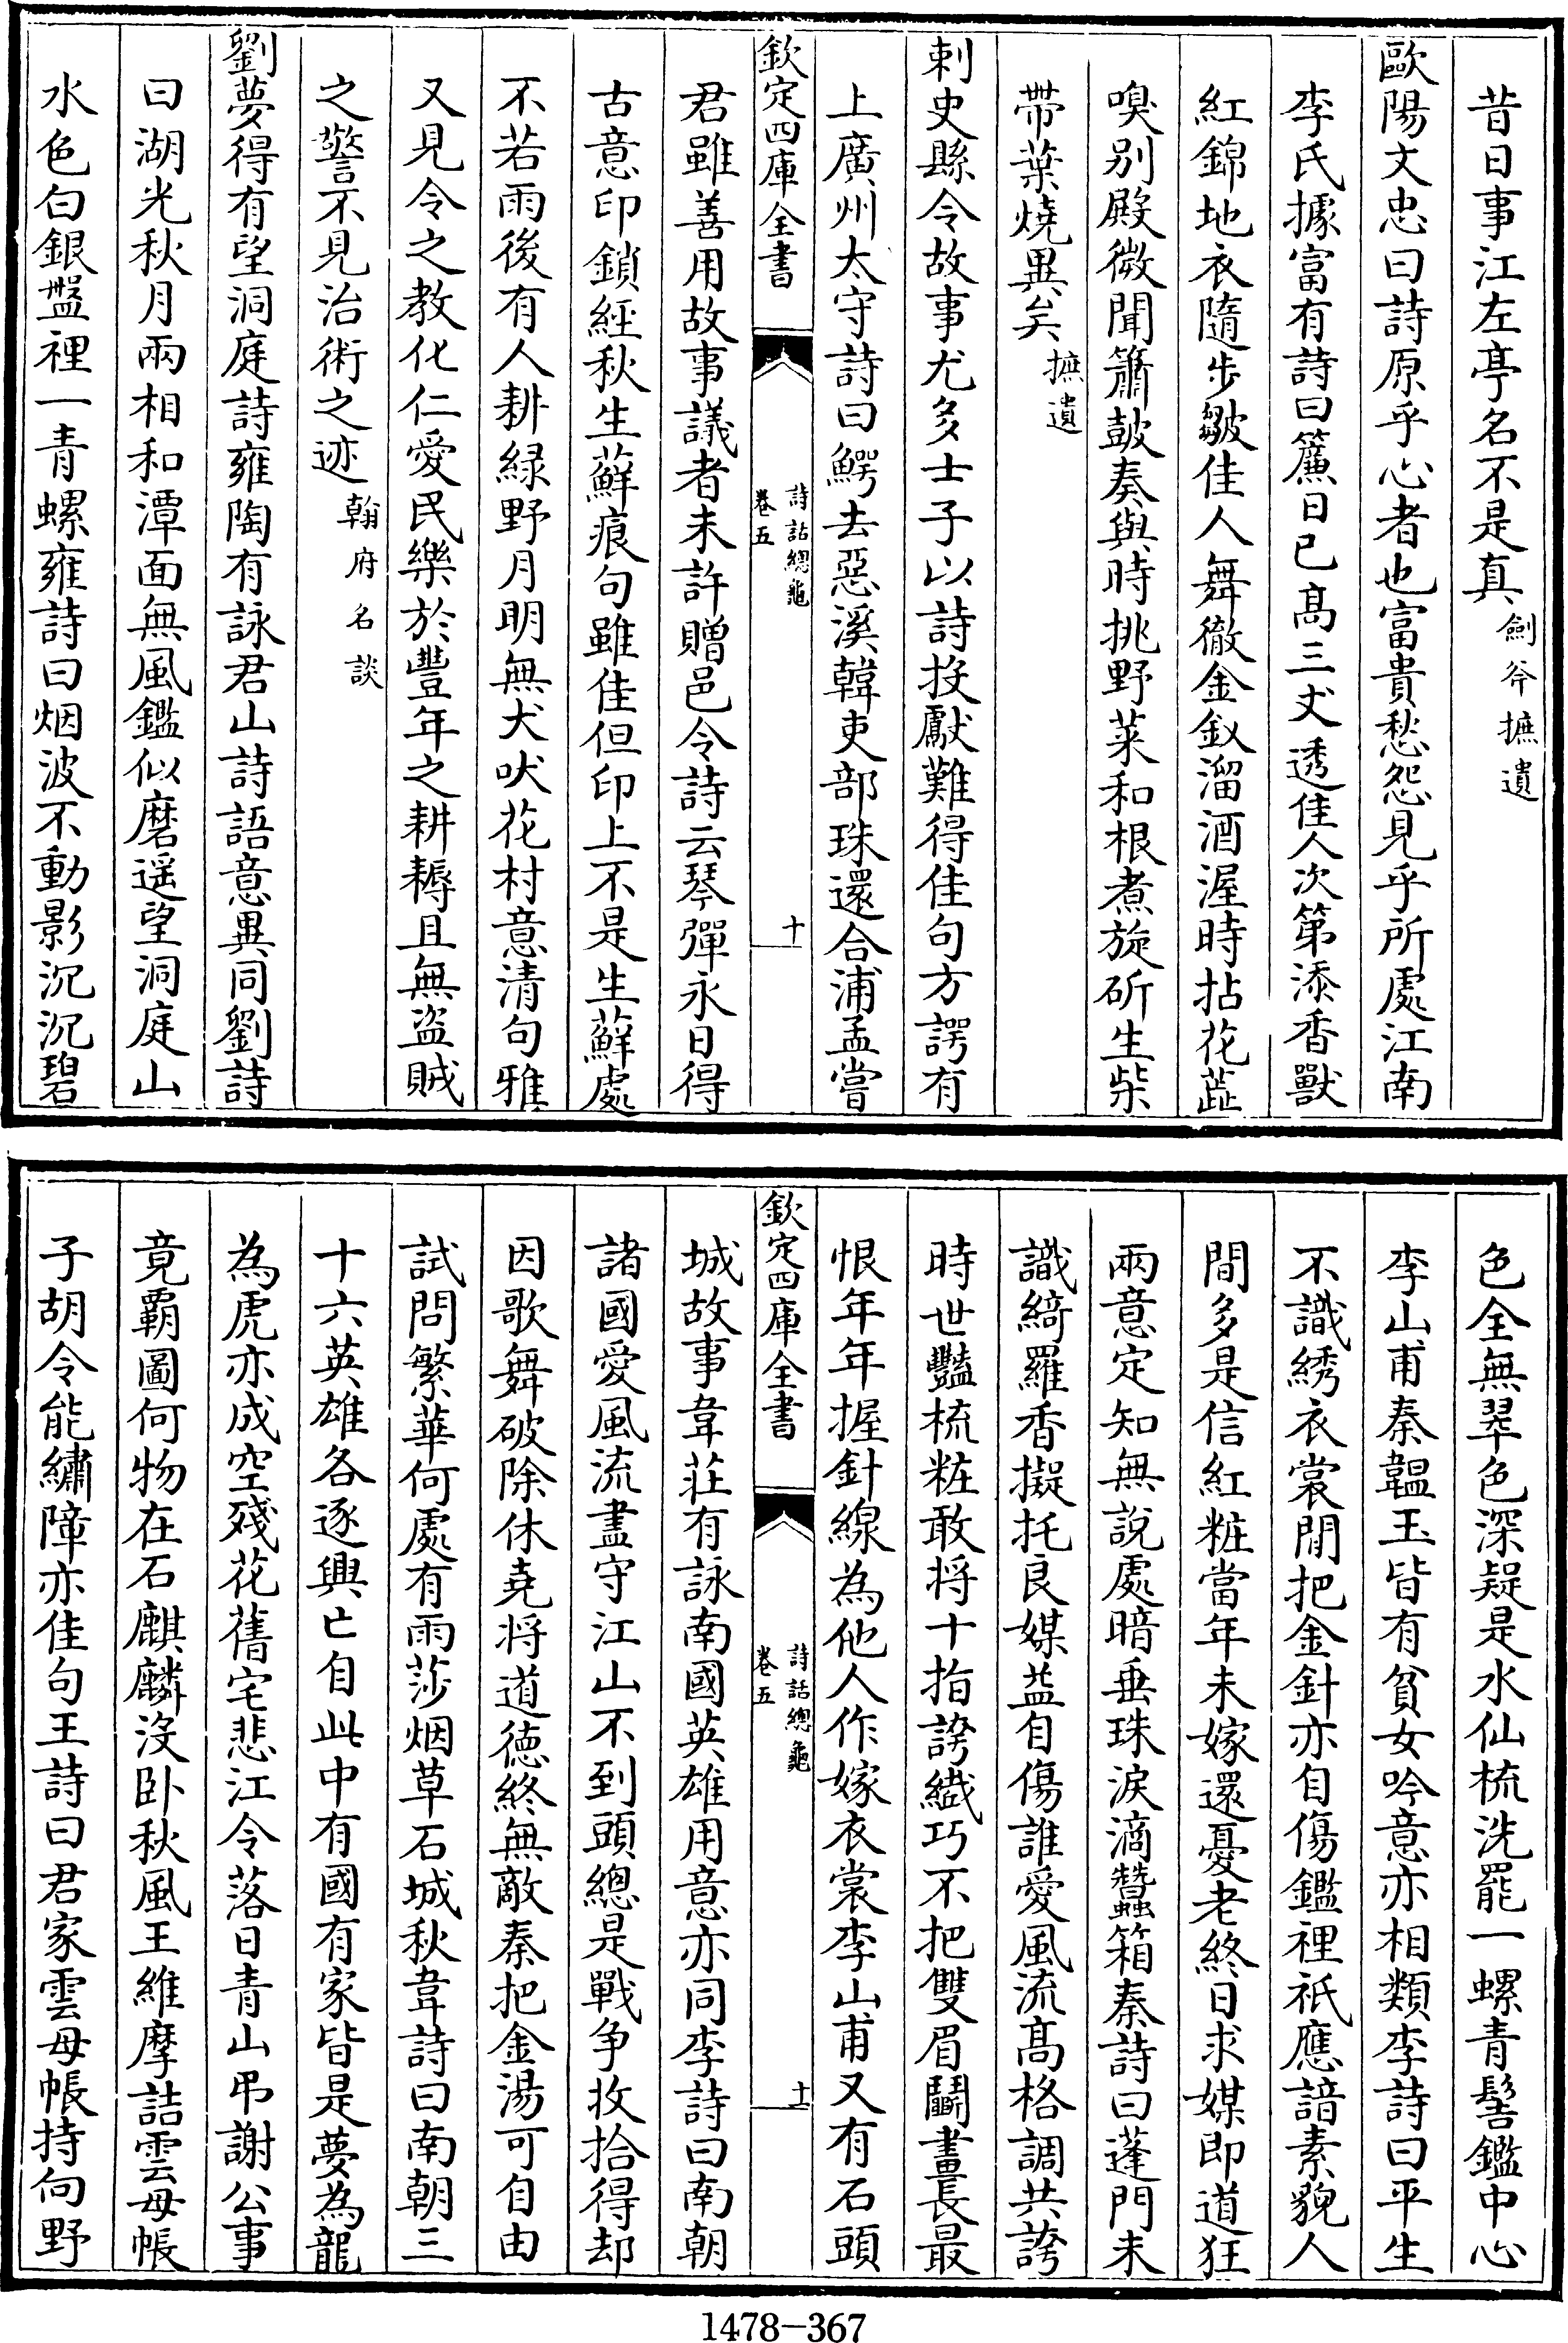 昔日事江左亭名不是真劍斧摭遺
歐陽文忠曰詩原乎心者也富貴愁怨見乎所處江南
李氏據富有詩曰簾日已髙三丈透佳人次第添香獸
紅錦地衣隨步皺佳人舞徹金釵溜酒渥時拈花蕋
嗅别殿微聞簫鼓奏與時挑野菜和根煮旋斫生柴
帶葉燒異矣摭遺
刺史縣令故事尤多士子以詩投獻難得佳句方諤有
上廣州太守詩曰鰐去惡溪韓吏部珠還合浦孟嘗
欽定四庫全書
詩話總龜
卷五
十
君雖善用故事議者未許贈邑令詩云琴彈永日得
古意印鎖經秋生蘚痕句雖佳但印上不是生蘚處
不若雨後有人耕緑野月明無犬吠花村意清句雅
又見令之教化仁愛民樂於豐年之耕耨且無盗賊
之警不見治術之迹翰府名談
劉夢得有望洞庭詩雍陶有詠君山詩語意異同劉詩
曰湖光秋月兩相和潭面無風鑑似磨遥望洞庭山
水色白銀盤裡一青螺雍詩曰烟波不動影沉沉碧
色全無翠色深疑是水仙梳洗罷一螺青髻鑑中心
李山甫秦韞玉皆有貧女吟意亦相類李詩曰平生
不識綉衣裳閒把金針亦自傷鑑裡祇應諳素貌人
間多是信紅粧當年未嫁還憂老終日求媒即道狂
兩意定知無說處暗垂珠淚滴蠶箱秦詩曰蓬門未
識綺羅香擬托良媒益自傷誰愛風流髙格調共誇
時世豔梳粧敢将十指誇纎巧不把雙眉鬭畫長最
恨年年握針線為他人作嫁衣裳李山甫又有石頭
欽定四庫全書
詩話總龜
卷五
十一
城故事韋荘有詠南國英雄用意亦同李詩曰南朝
諸國愛風流盡守江山不到頭總是戰争收拾得却
因歌舞破除休堯将道徳終無敵秦把金湯可自由
試問繁華何處有雨莎烟草石城秋韋詩曰南朝三
十六英雄各逐興亡自此中有國有家皆是夢為龍
為虎亦成空殘花舊宅悲江令落日青山弔謝公事
竟霸圖何物在石麒麟沒卧秋風王維摩詰雲母帳
子胡令能繡障亦佳句王詩曰君家雲母帳持向野
1478-367